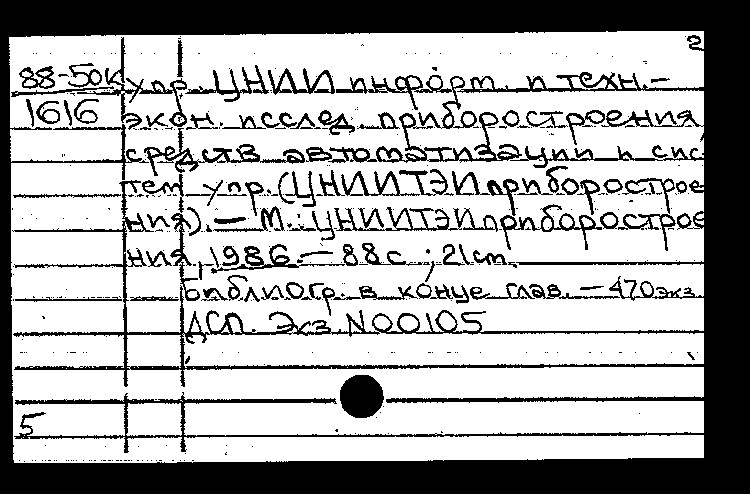 2
88-50К упр. ЦНИИ информ. и техн.-
1616 экон. исслед. приборостроения,
средств автоматизации и сис
тем упр. (ЦНИИТЭИ приборострое
ния). — М.: ЦНИИТЭИ приборострое
ния, 1986. — 88 с ; 21 см.
Библиогр. в конце глав. — 470 экз.
ДСП. Экз. N00105
5